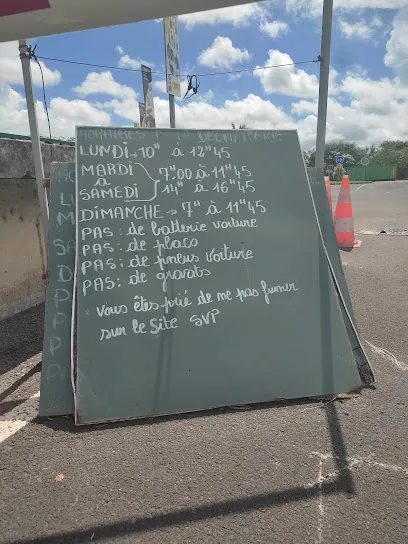 HORAIRES
LUNDI → 10" à 12"45
MARDI à SAMEDI 7"00 à 11"45
14" à 16"45
DIMANCHE → 7" à 11"45
PAS: de batterie voiture
PAS: de placo
PAS: de pneus voiture
PAS: de gravats
Vous êtes prié de ne pas fumer
sur le site SVP